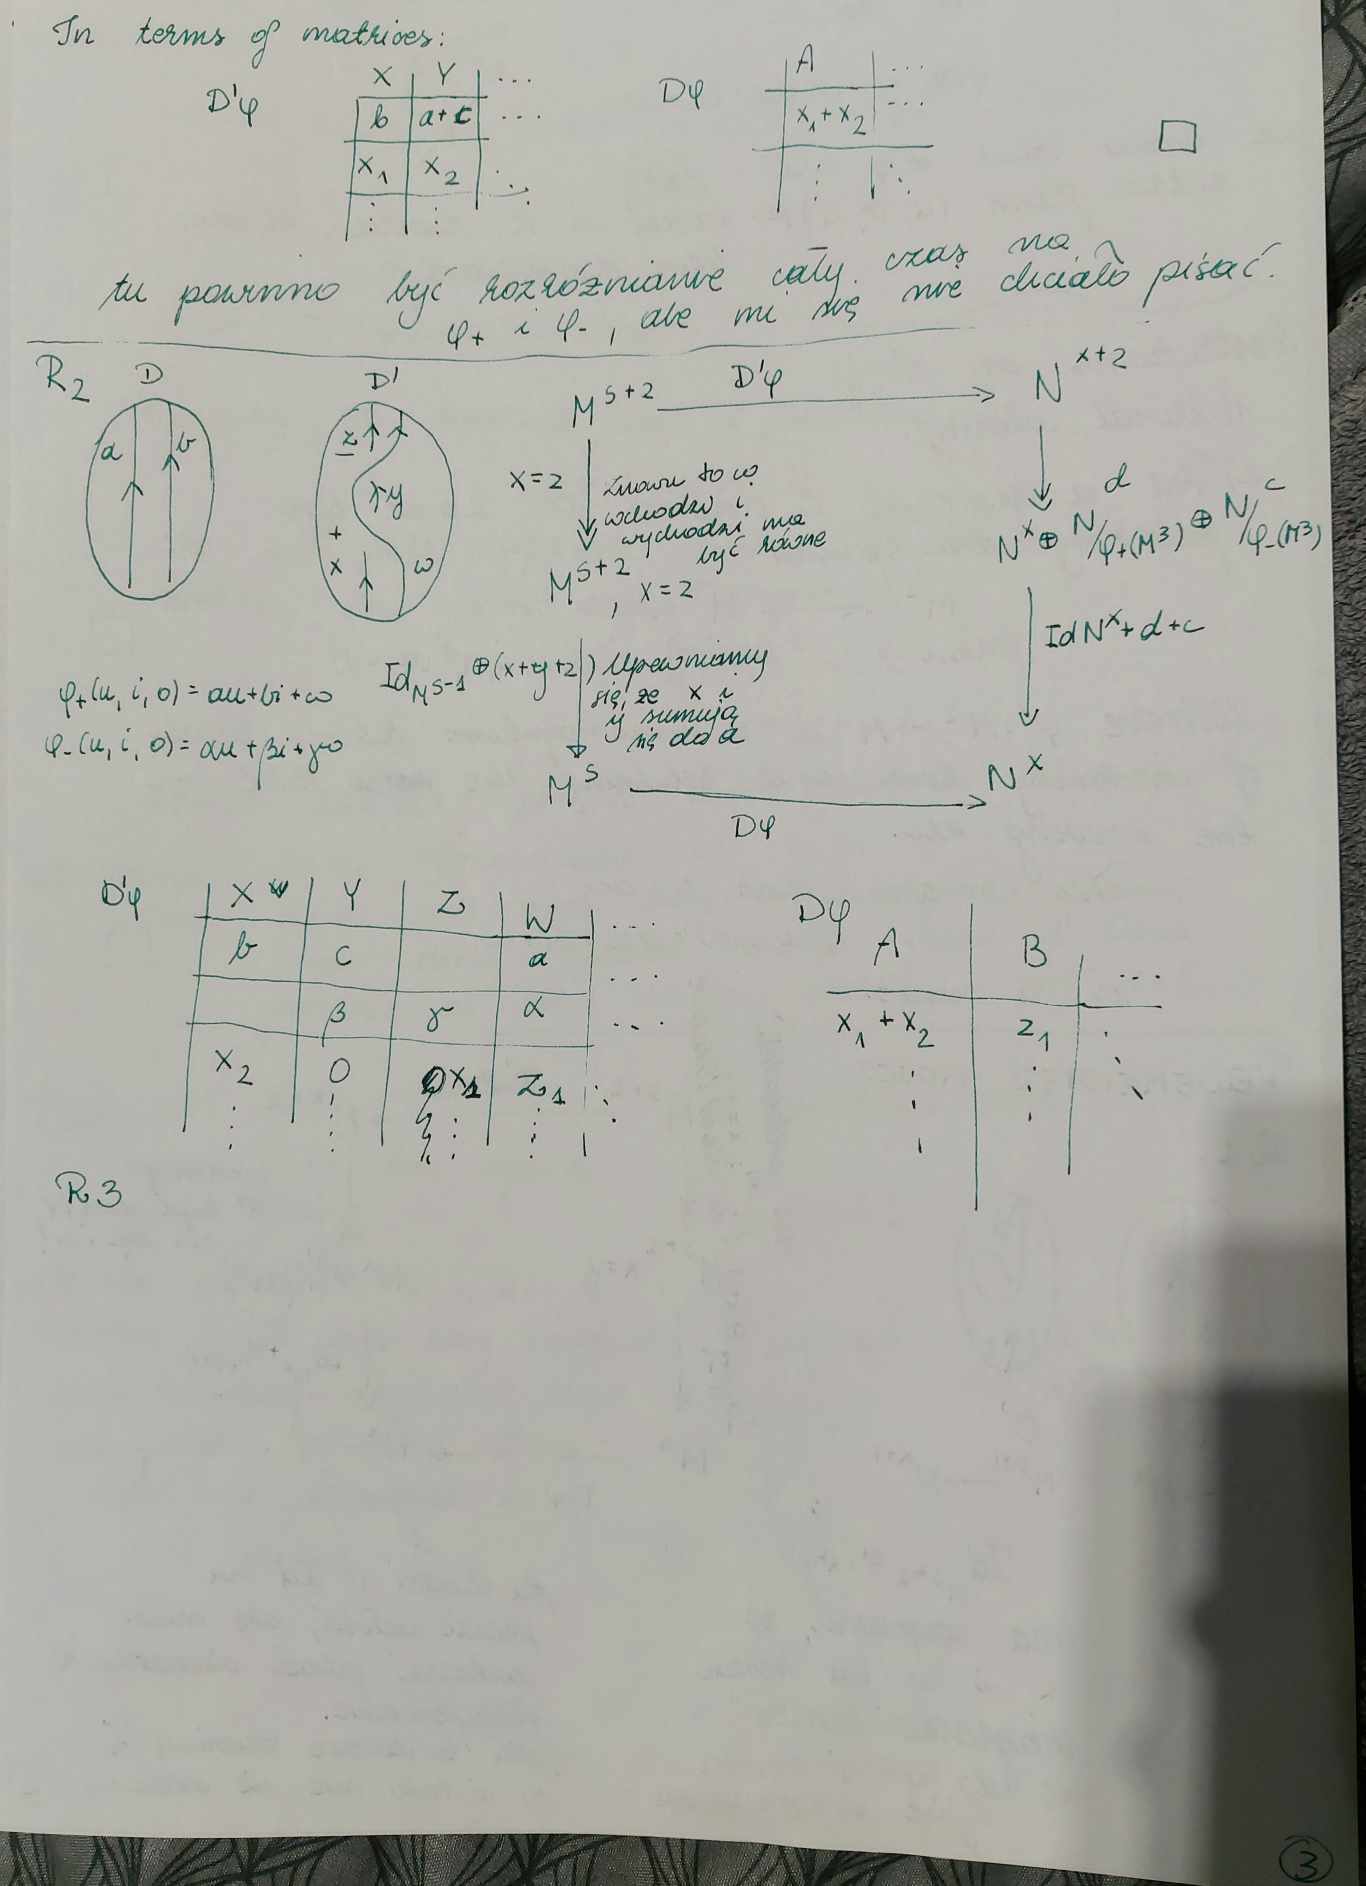 In terms of matrices:
D'φ
X Y ...
b a+c ...
x₁ x₂ ⋱
⋮ ⋮
Dφ
A ...
x₁+x₂ ...
⋮ ⋱
□
tu powinno być rozróżnianie cały czas na
φ₊ i φ₋, ale mi się nie chciało pisać.
R₂
D
a b
D'
z y
+
x w
φ₊(u, i, o) = au+bi+co
φ₋(u, i, o) = αu+βi+γo
M^{S+2} D'φ N^{x+2}
x=2
znowu to co
wchodzi i
wychodzi ma
być równe
M^{S+2}, x=2
N^x ⊕ N/φ₊(M³) ⊕ N/φ₋(M³)
d c
Id_{M^{S-1}} ⊕ (x+y+z)
Upewniamy
się, że x i
y sumują
się do a
Id N^x + d + c
M^S Dφ N^x
D'φ
X Y Z W ...
b c a ...
β γ α ...
x₂ 0 x₁ z₁ ⋱
⋮ ⋮ ⋮ ⋮
Dφ
A B ...
x₁ + x₂ z₁ ⋱
⋮ ⋮
R3
3